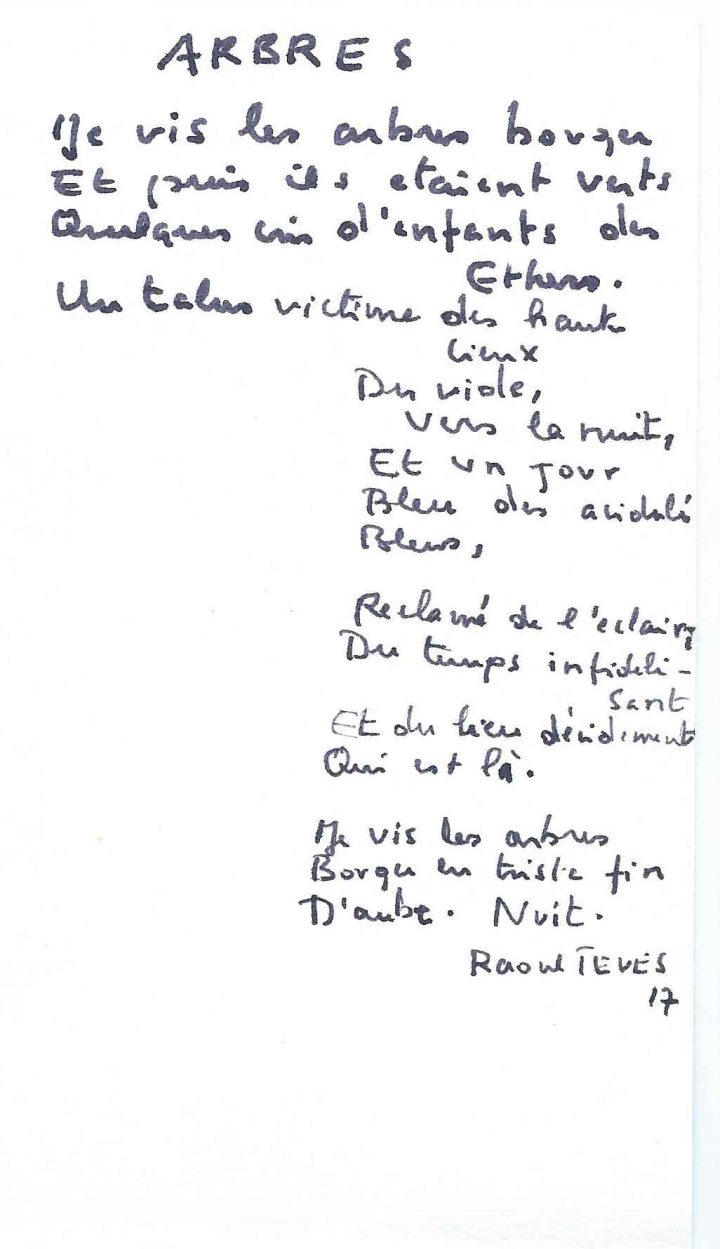 ARBRES
Je vis les arbres
Et puis ils etaient verts
Quelques cris d'enfants des
Ethers.
Un talus victime des hauts
lieux
Du viole,
Vers la nuit,
Et un jour
Bleu des acidulé
Bleus,
Reclamé de l'eclair,
Du temps infidéli-
sant
Et du lieu décidement
Qui est là.
Je vis les arbres
en triste fin
D'aube. Nuit.
Raoul TEVES
17